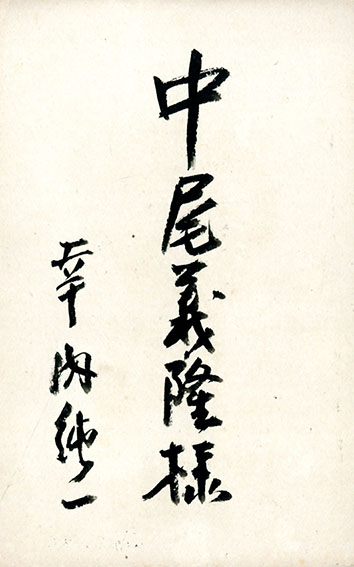 中尾義隆様
幸内純一